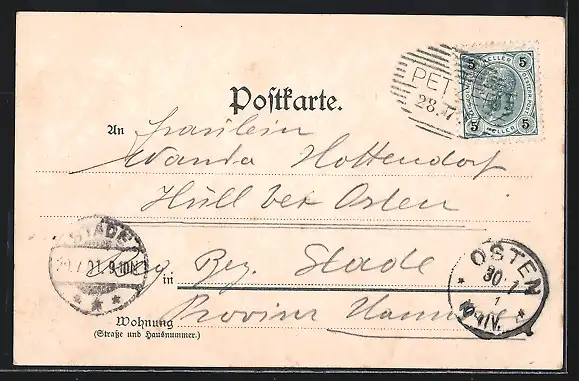 5 HELLER 5
5 HELLER 5
PET
28.7
Postkarte.
An Fräulein
Wanda Hottendorf
Hüll bei Osten
STADE
9-10N.
in Bez. Stade
OSTEN
30 7
1
Provinz Hannover
Wohnung
(Straße und Hausnummer.)